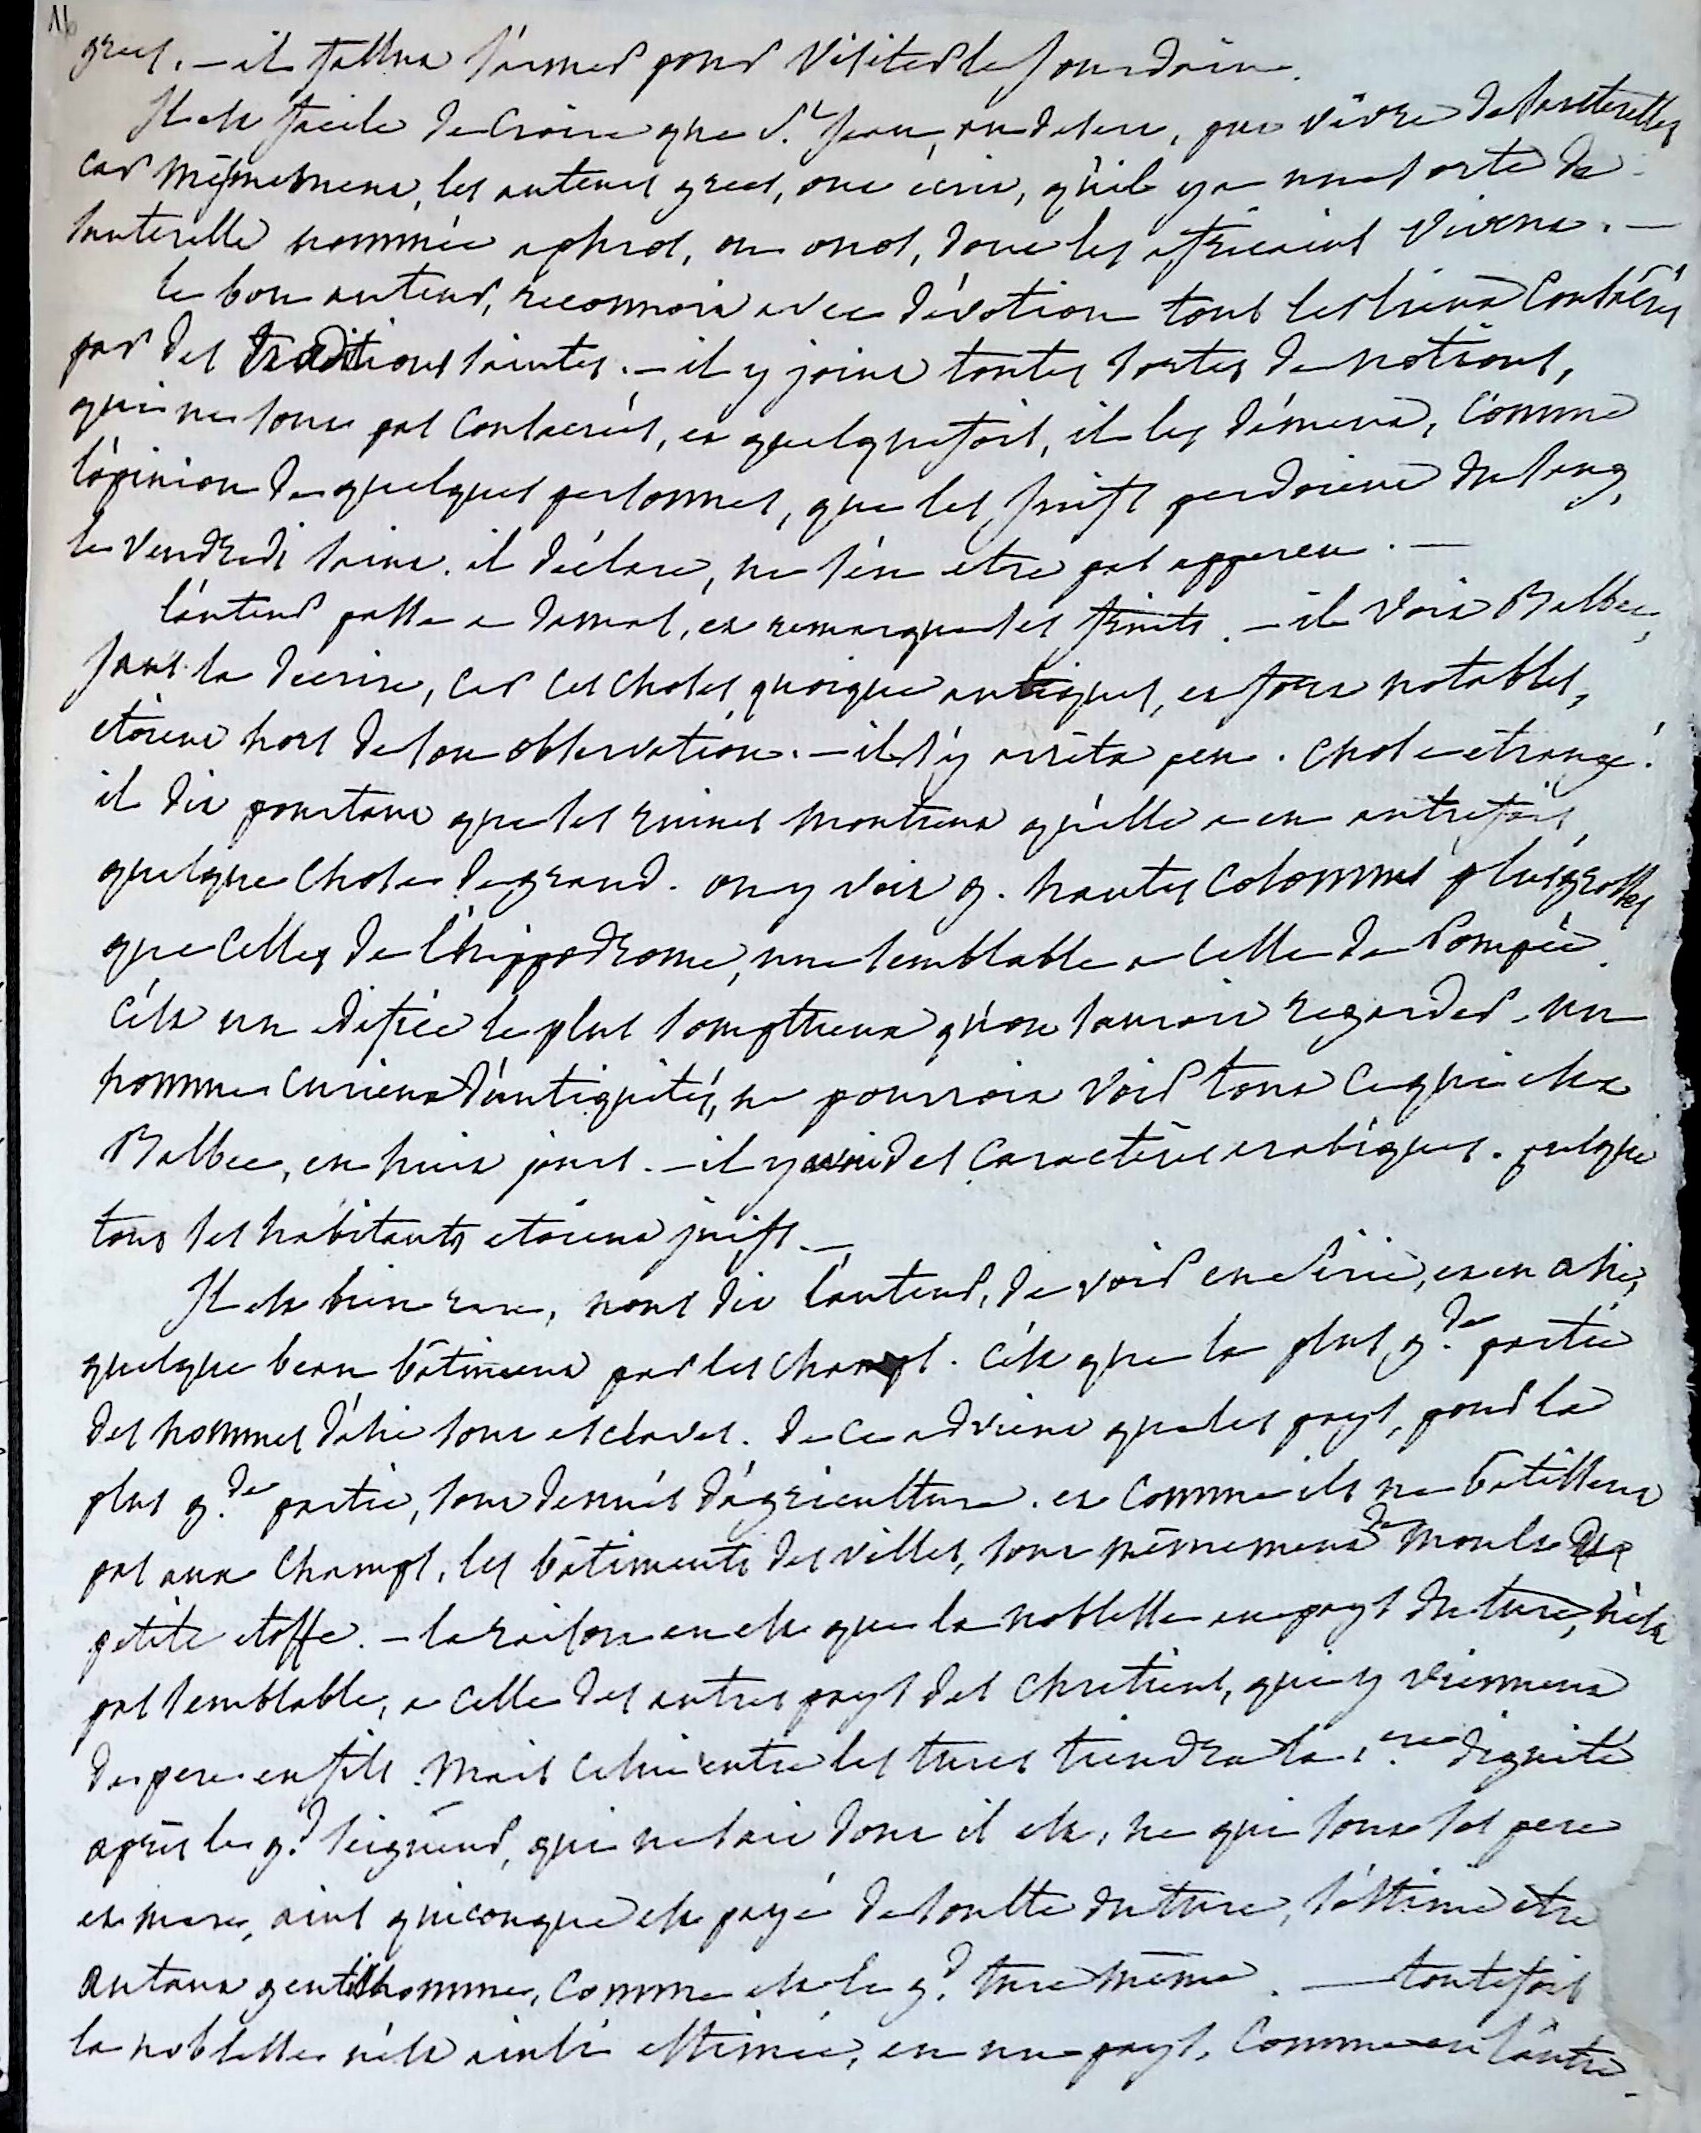 16
grecs. — il fallut s'armer pour visiter le Jourdain.
Il est facile de croire que St Jean, au desert, put vivre de sauterelles
car mêmement, les auteurs grecs, ont écrit, qu'il y a une sorte de
sauterelle nommée ophios, ou onos, dont les africains vivent. —
le bon auteur, reconnoit avec dévotion tous les lieux consacrés
par des traditions saintes. — il y joint toutes sortes de notions,
qui ne sont pas consacrées, et quelquefois, il les dément, comme
l'opinion de quelques personnes, que les juifs perdoient du sang,
le vendredi saint. il déclare, ne s'en etre pas apperceu. —
l'auteur passe a damas, et remarque les fruits. — il voit Balbec,
sans la decrire, car ces choses, quoique antiques, et fort notables,
etoient hors de son observation. — il s'y arrêta peu. chose etrange!
il dit pourtant que les ruines montrent qu'elle a eu autrefois,
quelque chose de grand. on y voit 9. hautes colomnes plus grosses
que celles de l'hippodrome, une semblable a celle de Pompée.
c'est un edifice le plus somptueux qu'on sauroit regarder. un
homme curieux d'antiquités, ne pourroit voir tout ce qui est a
Balbec, en huit jours. — il y avoit des caractères arabiques. presque
tous les habitants etoient juifs. —
Il est bien rare, nous dit l'auteur, de voir en Sirie, et en asie,
quelque beau bâtiment par les champs. c'est que la plus gde partie
des hommes d'asie sont esclaves. de ce advient que les pays, pour la
plus gde partie, sont denués d'agriculture. et comme ils ne bâtissent
pas aux champs, les bâtiments des villes, sont mêmement de moult
petite etoffe. — la raison en est que la noblesse au pays du turc, n'est
pas semblable, a celle des autres pays des chretiens, qui y viennent
de pere en fils. mais celui entre les turcs tiendra la 1ere dignité
après le gd seigneur, qui ne sait dont il est, ne qui sont ses pere
et mere, ains quiconque est payé de soulte du turc, s'estime etre
autant gentilhomme, comme est le gd turc même. — toutefois
la noblesse n'est ainsi estimée, en un pays, comme en l'autre.